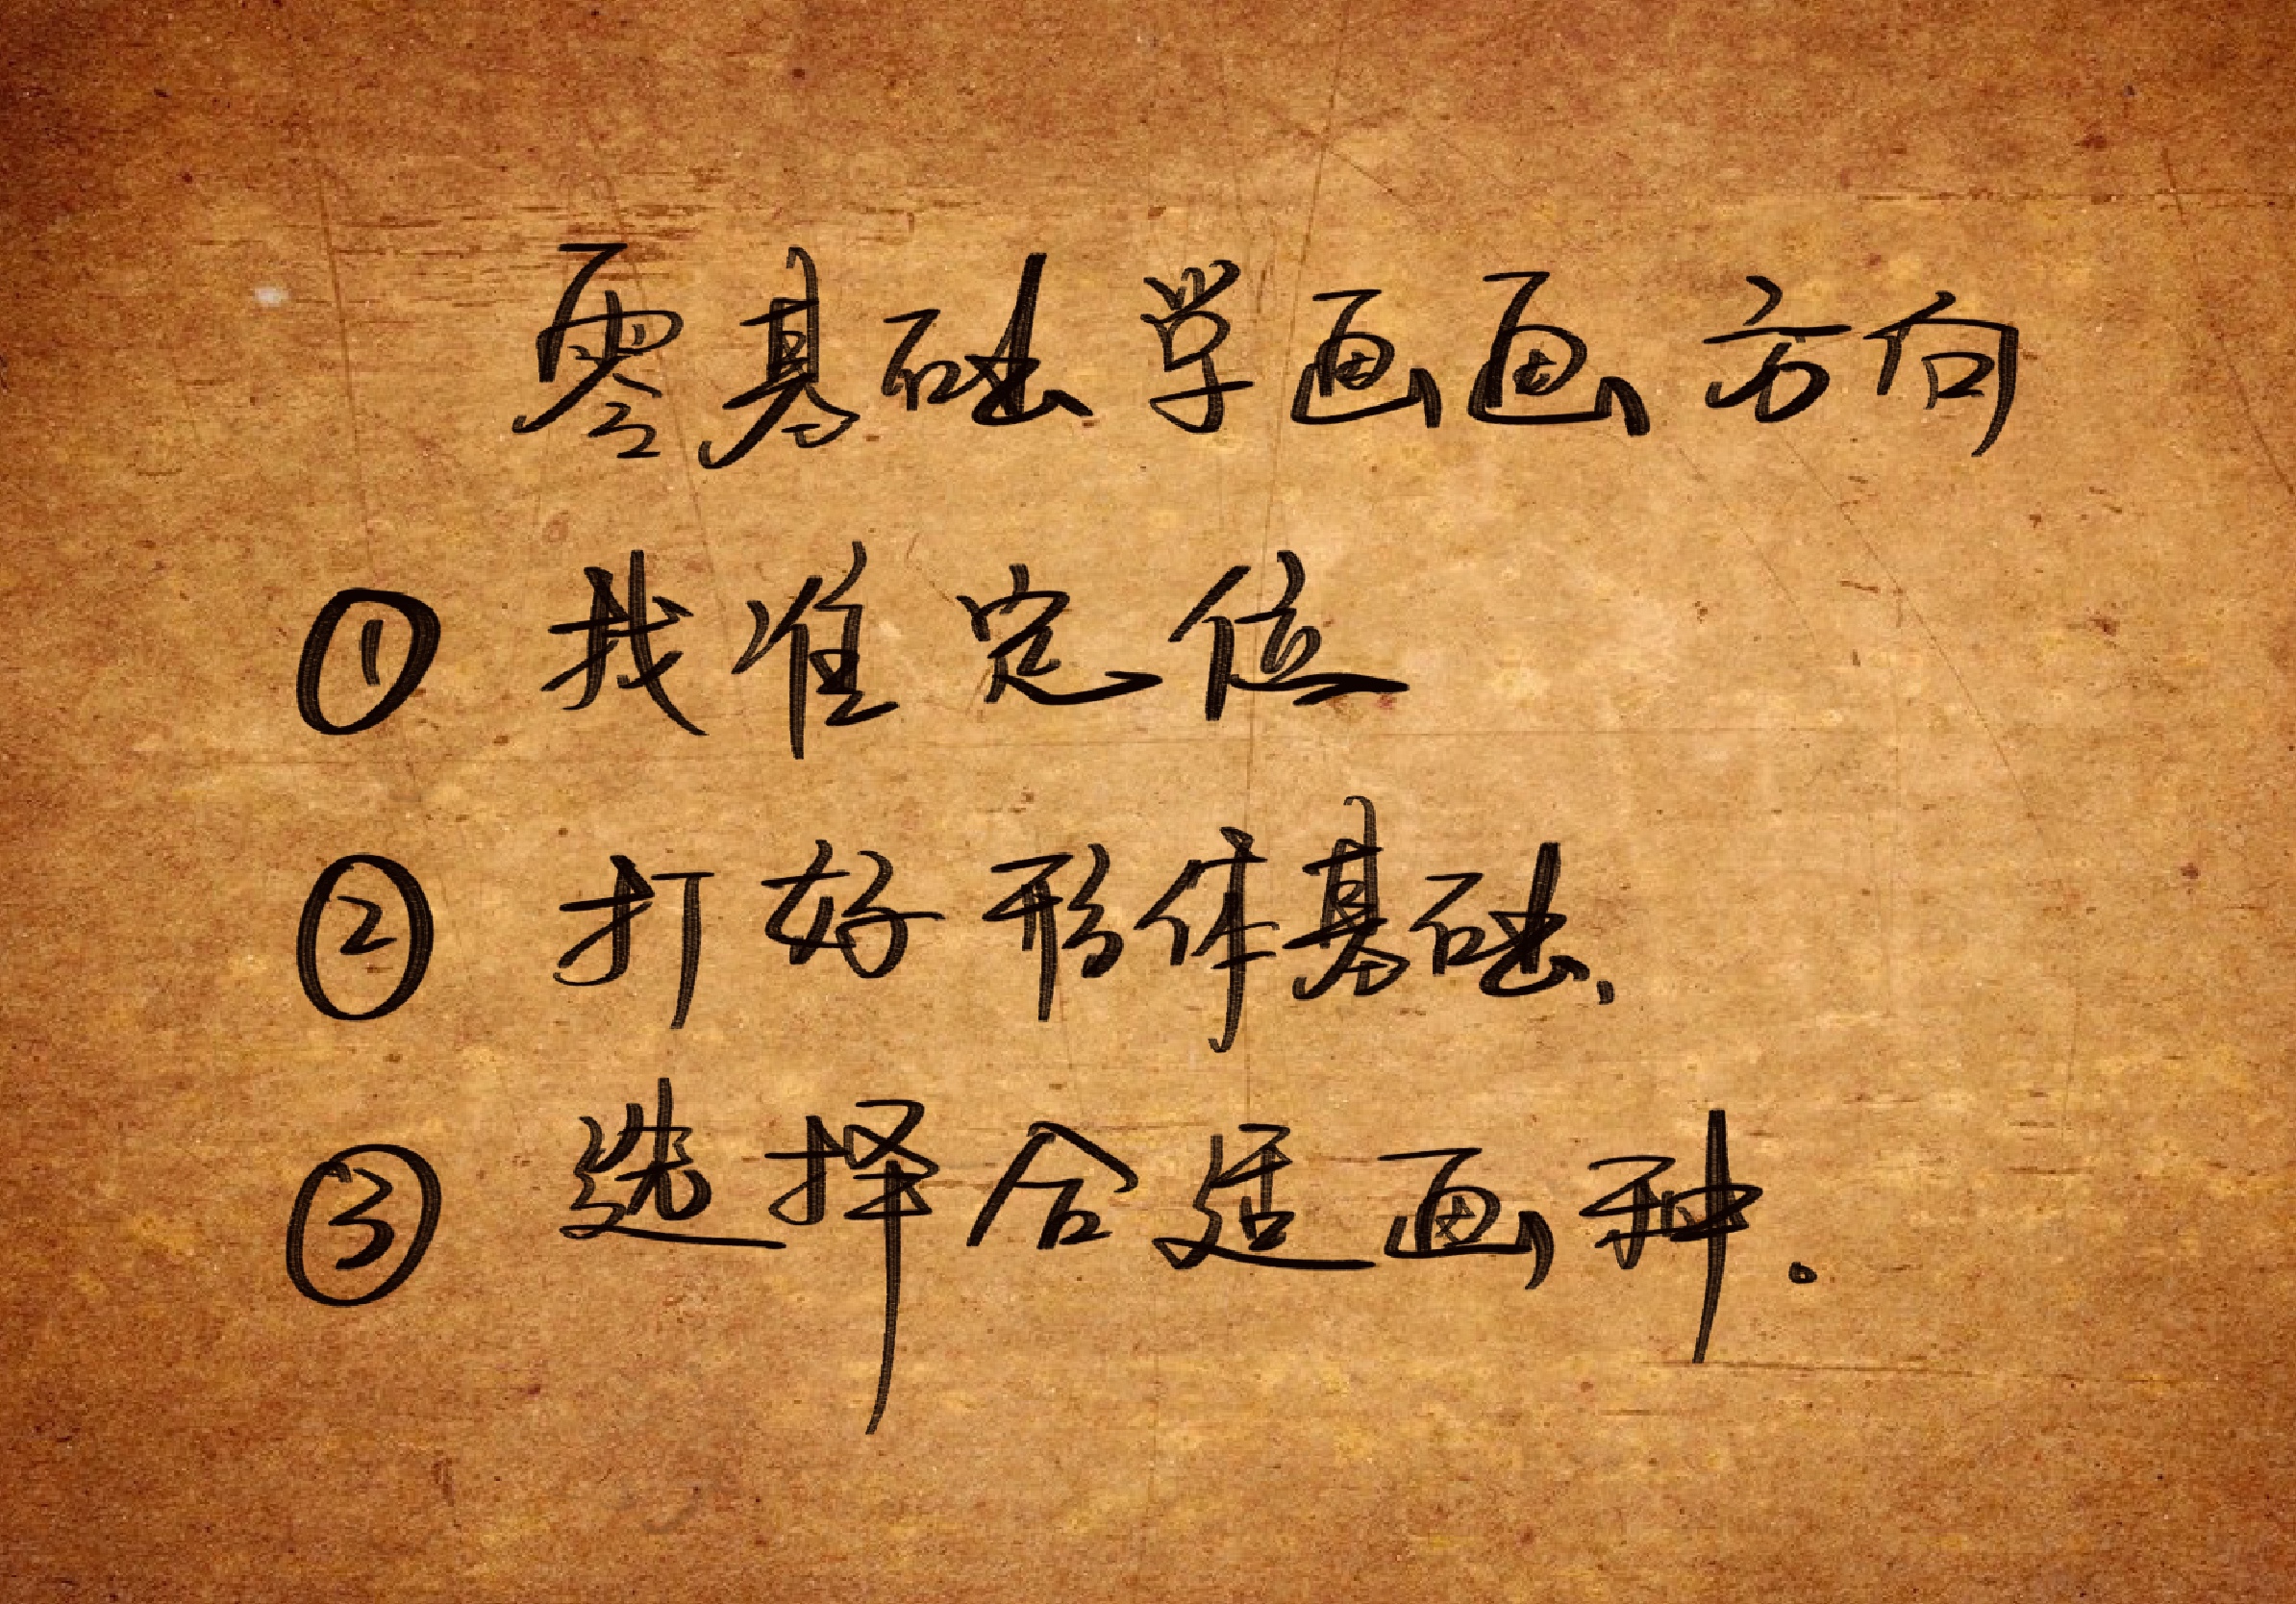 零基础学画画方向
① 找准定位
② 打好形体基础.
③ 选择合适画种.